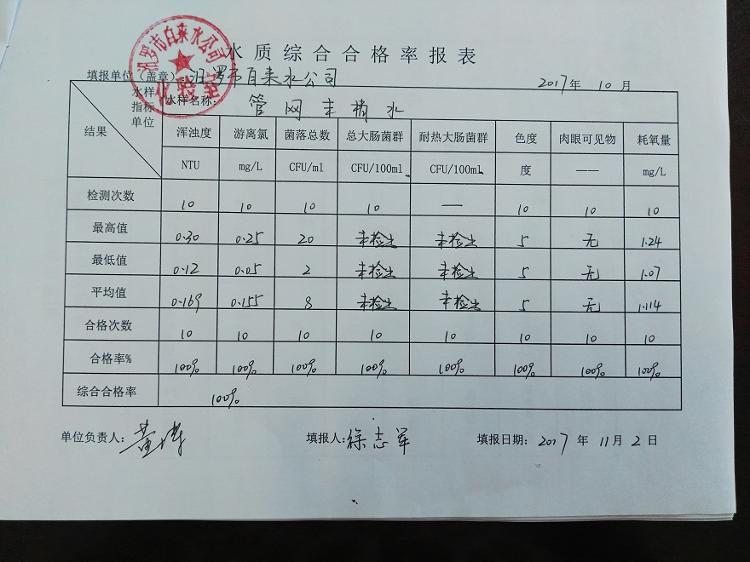 水质综合合格率报表
汨罗市自来水公司
化验室
填报单位（盖章） 汨罗市自来水公司 2017年 10月
水样 水样名称： 管网末梢水
指标
单位
结果
浑浊度 游离氯 菌落总数 总大肠菌群 耐热大肠菌群 色度 肉眼可见物 耗氧量
NTU mg/L CFU/ml CFU/100ml CFU/100ml 度 —— mg/L
检测次数 10 10 10 10 — 10 10 10
最高值 0.30 0.25 20 未检出 未检出 5 无 1.24
最低值 0.12 0.05 2 未检出 未检出 5 无 1.07
平均值 0.169 0.155 8 未检出 未检出 5 无 1.114
合格次数 10 10 10 10 10 10 10 10
合格率% 100% 100% 100% 100% 100% 100% 100% 100%
综合合格率 100%
单位负责人： 黄 填报人：徐志军 填报日期： 2017 年 11月 2 日